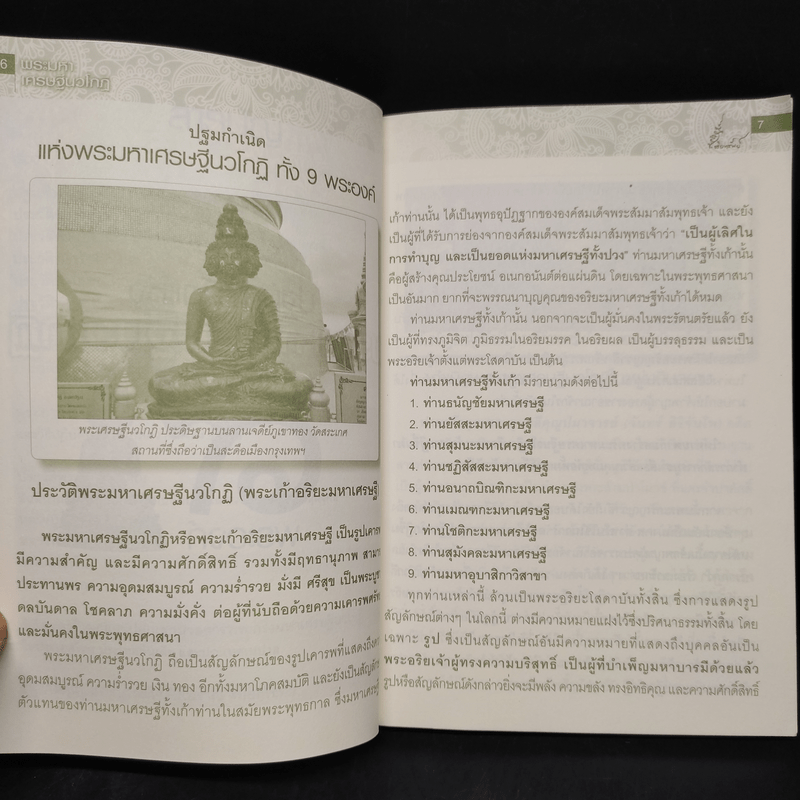 6
พระมหา
เศรษฐีนวโกฏิ
ปฐมกำเนิด
แห่งพระมหาเศรษฐีนวโกฏิ ทั้ง 9 พระองค์
พระเศรษฐีนวโกฏิ ประดิษฐานบนลานเจดีย์ภูเขาทอง วัดสระเกศ
สถานที่ซึ่งถือว่าเป็นสะดือเมืองกรุงเทพฯ
ประวัติพระมหาเศรษฐีนวโกฏิ (พระเก้าอริยะมหาเศรษฐี)
พระมหาเศรษฐีนวโกฏิหรือพระเก้าอริยะมหาเศรษฐี เป็นรูปเคารพ
มีความสำคัญ และมีความศักดิ์สิทธิ์ รวมทั้งมีฤทธานุภาพ
ประทานพร ความอุดมสมบูรณ์ ความร่ำรวย มั่งมี ศรีสุข
ดลบันดาล โชคลาภ ความมั่งคั่ง ต่อผู้ที่นับถือด้วยความเคารพ
และมั่นคงในพระพุทธศาสนา
พระมหาเศรษฐีนวโกฏิ ถือเป็นสัญลักษณ์ของรูปเคารพที่แสดงถึง
อุดมสมบูรณ์ ความร่ำรวย เงิน ทอง อีกทั้งมหาโภคสมบัติ และยังเป็น
ตัวแทนของท่านมหาเศรษฐีทั้งเก้าท่านในสมัยพระพุทธกาล ซึ่งมหาเศรษฐี
7
เก้าท่านนั้น ได้เป็นพุทธอุปัฏฐากขององค์สมเด็จพระสัมมาสัมพุทธเจ้า และยัง
เป็นผู้ที่ได้รับการย่องจากองค์สมเด็จพระสัมมาสัมพุทธเจ้าว่า "เป็นผู้เลิศใน
การทำบุญ และเป็นยอดแห่งมหาเศรษฐีทั้งปวง" ท่านมหาเศรษฐีทั้งเก้านั้น
คือผู้สร้างคุณประโยชน์ อเนกอนันต์ต่อแผ่นดิน โดยเฉพาะในพระพุทธศาสนา
เป็นอันมาก ยากที่จะพรรณนาบุญคุณของอริยะมหาเศรษฐีทั้งเก้าได้หมด
ท่านมหาเศรษฐีทั้งเก้านั้น นอกจากจะเป็นผู้มั่นคงในพระรัตนตรัยแล้ว ยัง
เป็นผู้ที่ทรงภูมิจิต ภูมิธรรมในอริยมรรค ในอริยผล เป็นผู้บรรลุธรรม และเป็น
พระอริยเจ้าตั้งแต่พระโสดาบัน เป็นต้น
ท่านมหาเศรษฐีทั้งเก้า มีรายนามดังต่อไปนี้
1. ท่านธนัญชัยมหาเศรษฐี
2. ท่านยัสสะมหาเศรษฐี
3. ท่านสุมนะมหาเศรษฐี
4. ท่านชฎิสัสสะมหาเศรษฐี
5. ท่านอนาถบิณฑิกะมหาเศรษฐี
6. ท่านเมณฑกะมหาเศรษฐี
7. ท่านโชติกะมหาเศรษฐี
8. ท่านสุมังคละมหาเศรษฐี
9. ท่านมหาอุบาสิกาวิสาขา
ทุกท่านเหล่านี้ ล้วนเป็นพระอริยะโสดาบันทั้งสิ้น ซึ่งการแสดงรูป
สัญลักษณ์ต่างๆ ในโลกนี้ ต่างมีความหมายแฝงไว้ซึ่งปริศนาธรรมทั้งสิ้น โดย
เฉพาะ รูป ซึ่งเป็นสัญลักษณ์อันมีความหมายที่แสดงถึงบุคคลอันเป็น
พระอริยเจ้าผู้ทรงความบริสุทธิ์ เป็นผู้ที่บำเพ็ญมหาบารมีด้วยแล้ว
รูปหรือสัญลักษณ์ดังกล่าวยิ่งจะมีพลัง ความขลัง ทรงอิทธิคุณ และความศักดิ์สิทธิ์